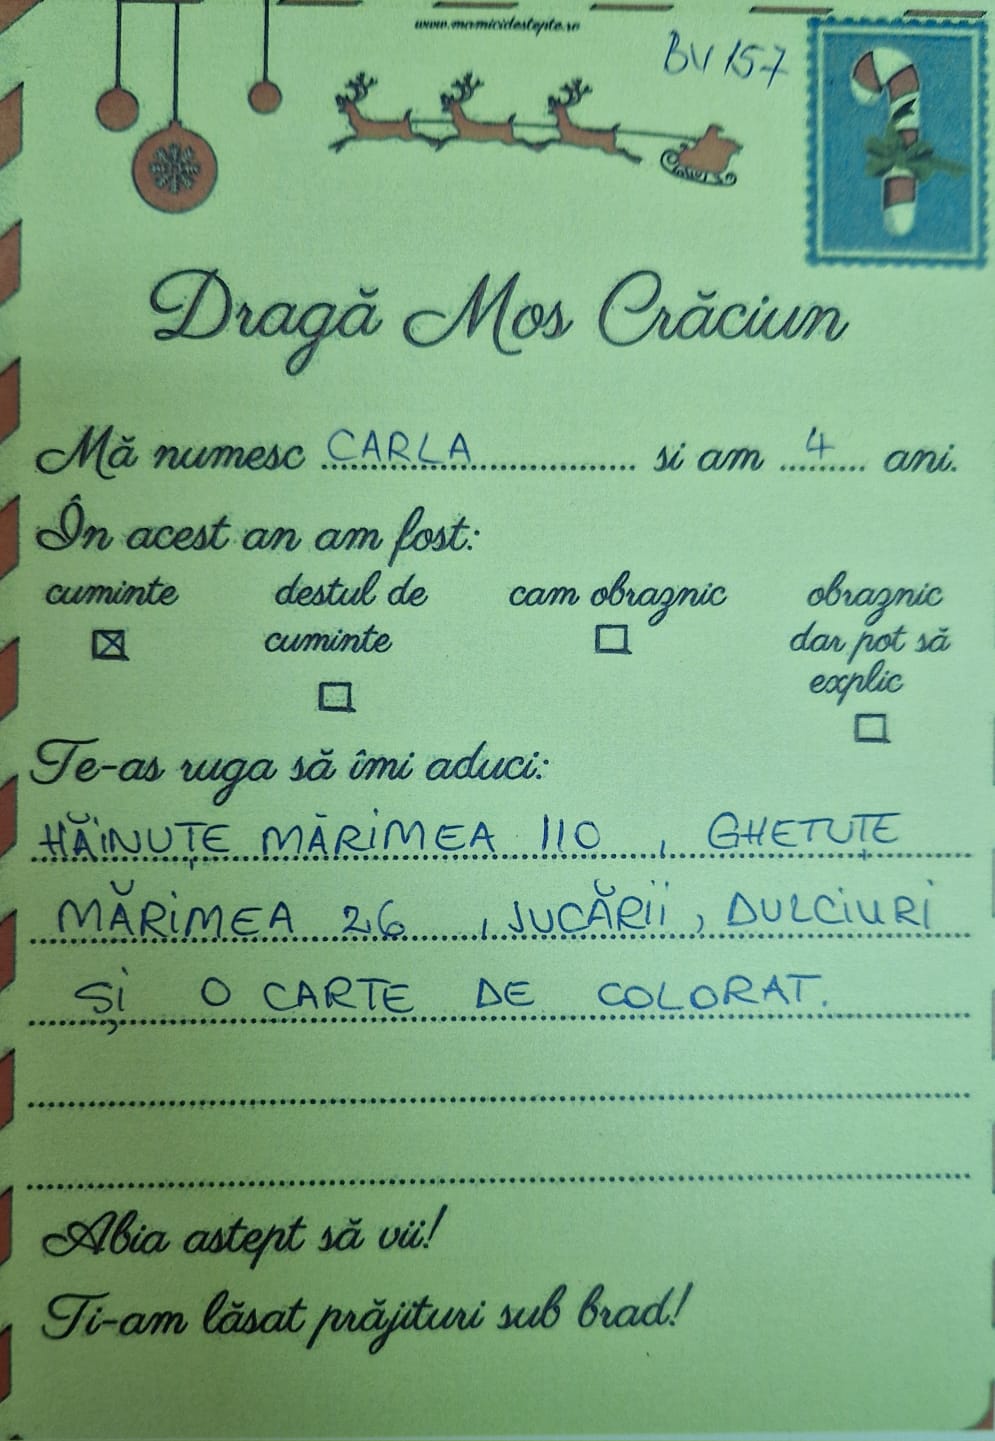 www.mamicidestepte.ro
BV 157
Dragă Mos Crăciun
Mă numesc CARLA si am 4 ani.
În acest an am fost:
cuminte destul de cuminte cam obraznic obraznic dar pot să explic
Te-as ruga să îmi aduci:
HĂINUȚE MĂRIMEA 110, GHETUȚE
MĂRIMEA 26, JUCĂRII, DULCIURI
ȘI O CARTE DE COLORAT.
Abia astept să vii!
Ti-am lăsat prăjituri sub brad!